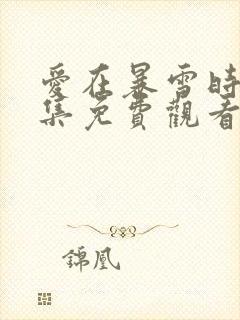 愛在暴雪時
集免費觀看
錦凰